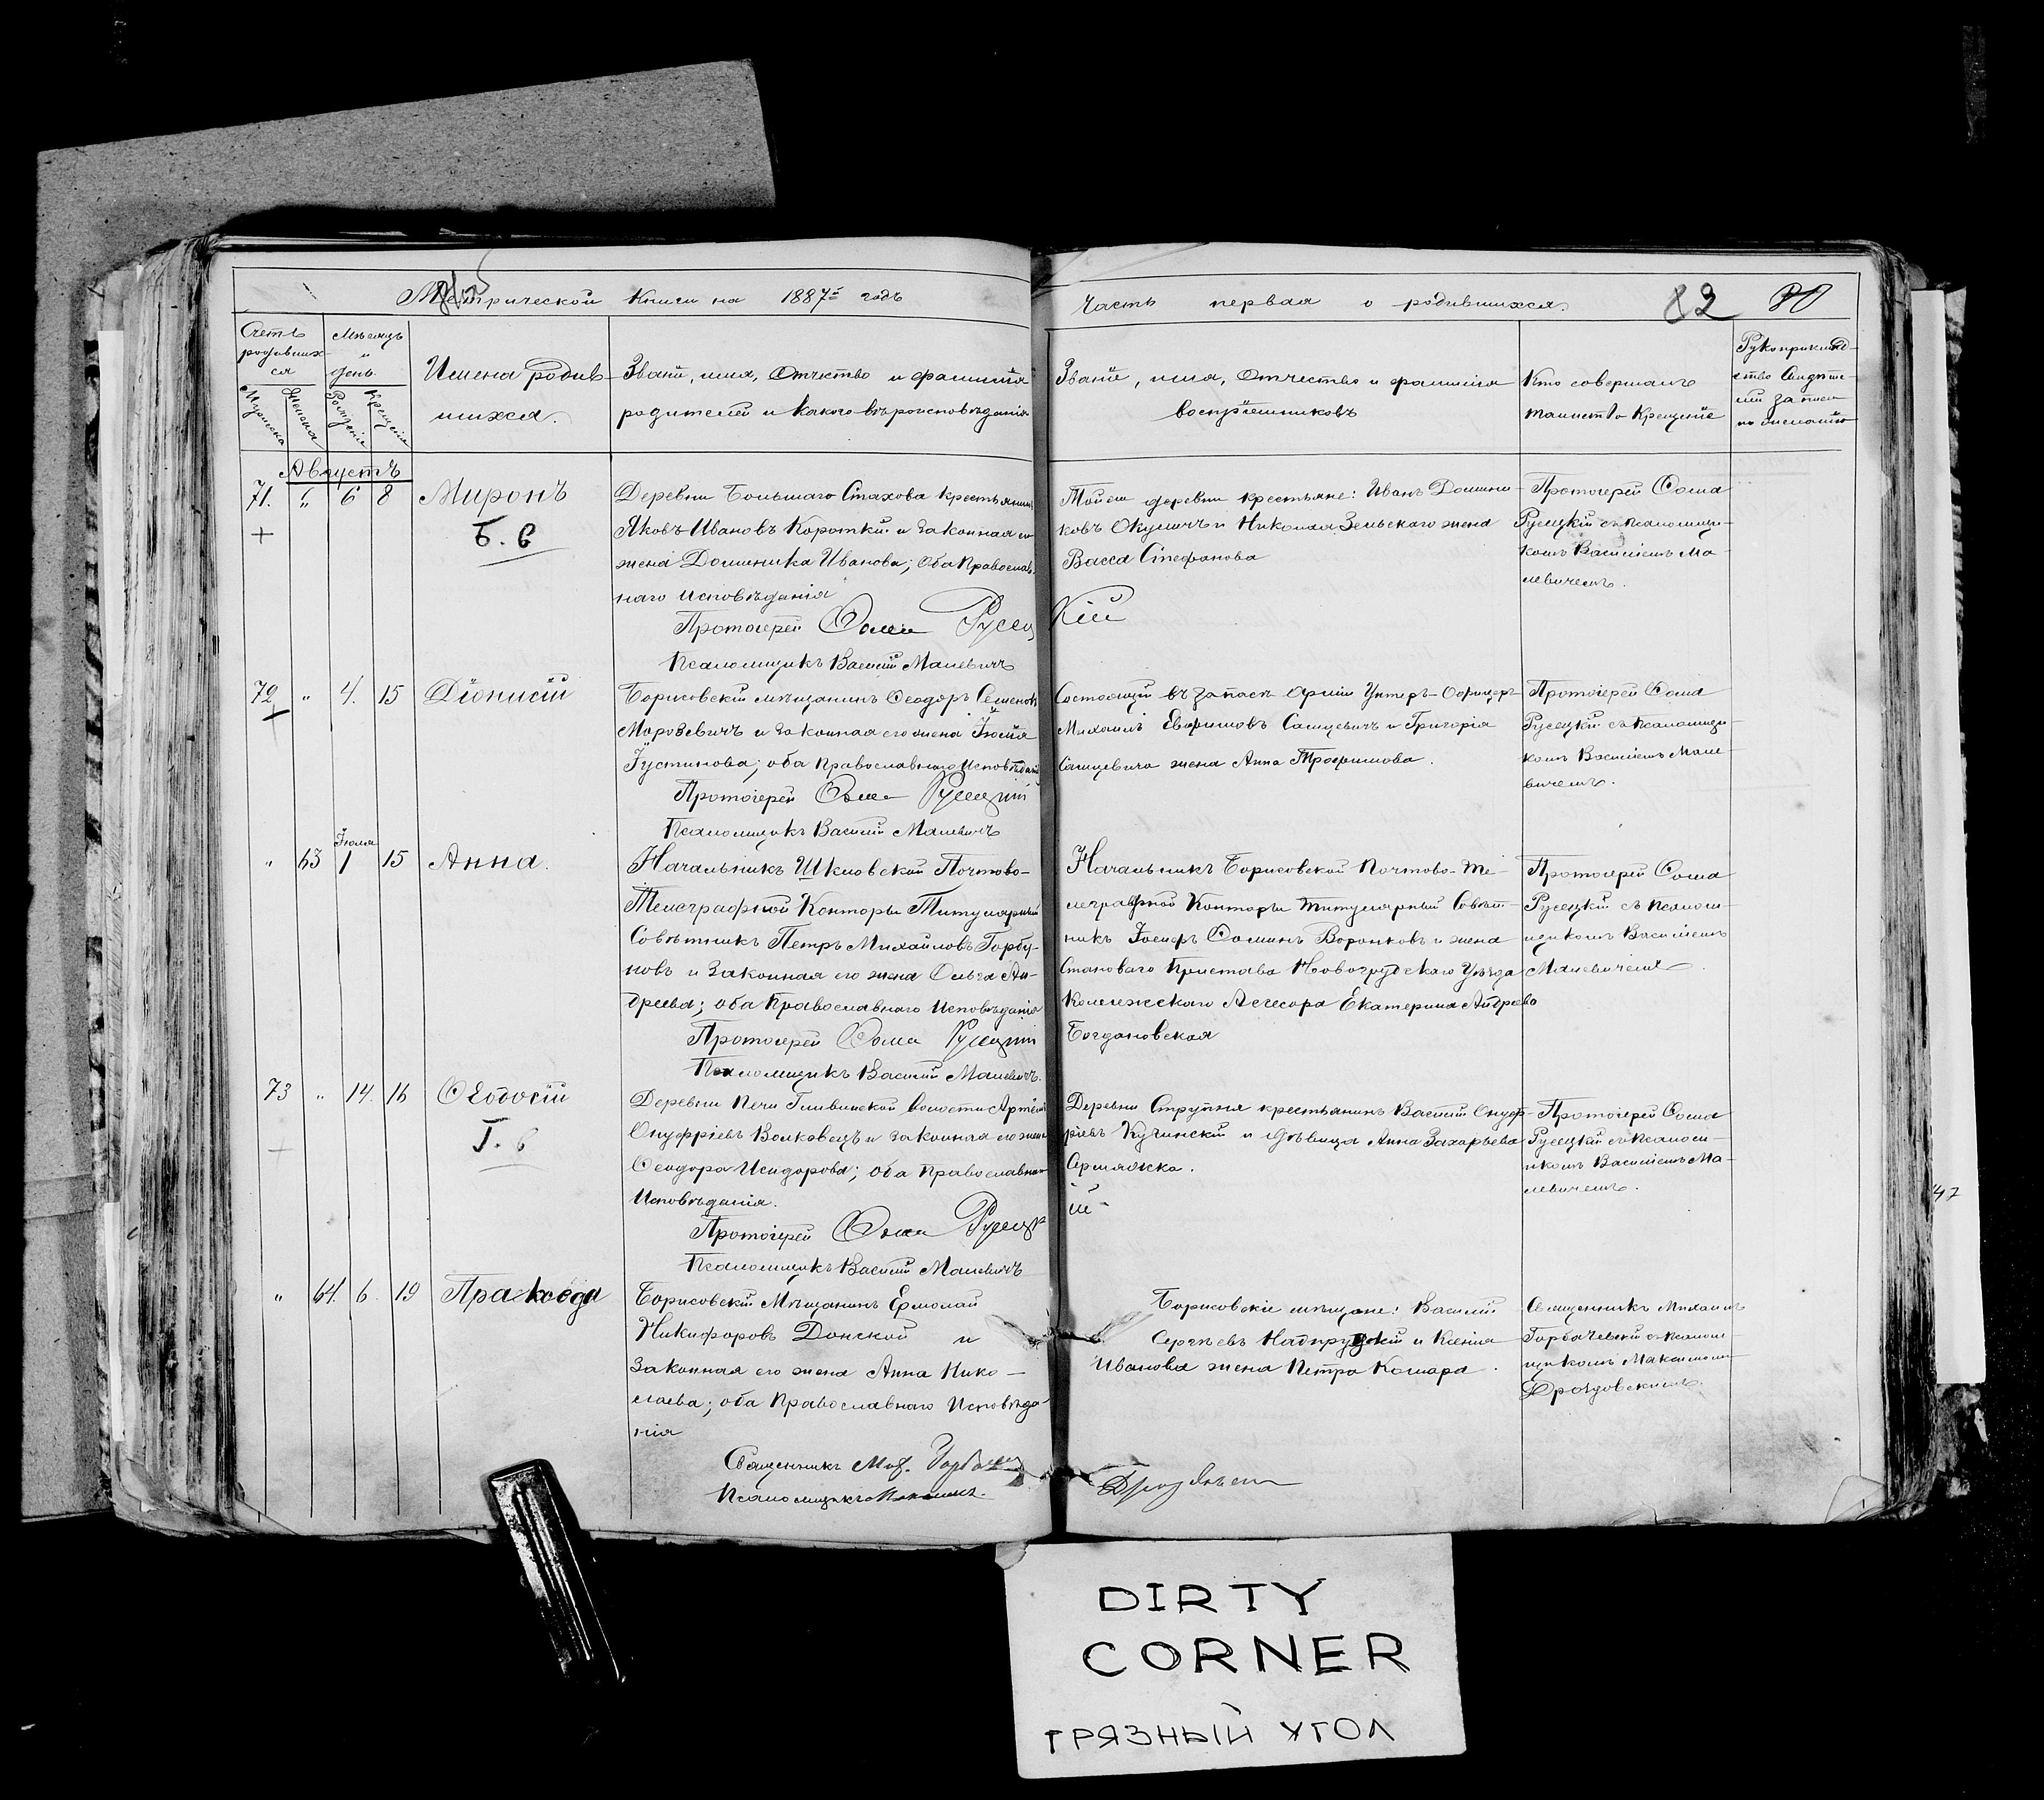 Метрической книги на 1887й годъ
Часть первая о родившихся.
82
Счетъ родившихся
Мѣсяцъ и день
Мужеска
Женска
Рожденія
Крещенія
Имена родив-
шихся.
Званіе, имя, отчество и фамилія
родителей и какого вѣроисповѣданія
Званіе, имя, отчество и фамилія
воспріемниковъ
Кто совершалъ
таинство крещенія
Рукоприклад-
ство свидѣте-
лей записи
по желанію
Августъ
71. " 6 8 Миронъ
Б. в
Деревни Большаго Стахова крестьянинъ
Яковъ Ивановъ Короткій и законная его
жена Доминика Иванова; оба Православ-
наго исповѣданія
Протоіерей Ѳома Русецкій
Псаломщикъ Василій Малевичъ
Той же деревни крестьяне: Иванъ Домини-
ковъ Окуличъ и Николая Зельскаго жена
Васса Стефанова
Протоіерей Ѳома
Русецкій съ псаломщи-
комъ Василіемъ Ма-
левичемъ.
72 " 4. 15 Діонисій
Борисовскій мѣщанинъ Ѳеодоръ Семеновъ
Морозевичъ и законная его жена Іюлія
Іустинова; оба православнаго исповѣданія
Протоіерей Ѳома Русецкій
Псаломщикъ Василій Малевичъ
Состоящій въ запасѣ арміи Унтеръ-Офицеръ
Михаилъ Евфимовъ Сацевичъ и Григорія
Сацевича жена Анна Трофимова.
Протоіерей Ѳома
Русецкій съ псаломщи-
комъ Василіемъ Мале-
вичемъ.
Іюля
" 63 1 15 Анна.
Начальникъ Шкловской Почтово-
Телеграфной Конторы Титулярный
Совѣтникъ Петръ Михайловъ Горбу-
новъ и законная его жена Ольга Ан-
дреева; оба Православнаго исповѣданія
Протоіерей Ѳома Русецкій
Псаломщикъ Василій Малевичъ.
Начальникъ Борисовской Почтово-Те-
леграфной Конторы Титулярный Совѣт-
никъ Іосифъ Ѳоминъ Воронковъ и жена
Становаго Пристава Новогрудскаго Уѣзда
Коллежскаго Асесора Екатерина Андреева
Богдановская
Протоіерей Ѳома
Русецкій съ псалом-
щикомъ Василіемъ
Малевичемъ.
73 " 14. 16 Ѳеодосій
Г. в
Деревни Печи Гливинской волости Артемій
Онуфріевъ Волковецъ и законная его жена
Ѳеодора Исидорова; оба православнаго
исповѣданія.
Протоіерей Ѳома Русецкій
Псаломщикъ Василій Малевичъ
Деревни Струпня крестьянинъ Василій Онуф-
ріевъ Кучинскій и дѣвица Анна Захарьева
Сермяжка.
Протоіерей Ѳома
Русецкій съ псалом-
щикомъ Василіемъ Ма-
левичемъ.
47
" 64. 6. 19 Праксѳда
Борисовскій Мѣщанинъ Ермолай
Никифоровъ Донской и
законная его жена Анна Нико-
лаева; оба Православнаго Исповѣда-
нія
Священникъ Мих. Горбачев
Псаломщикъ Максим. Дроздовскій
Борисовскіе мѣщане: Василій
Сергѣевъ и Ксенія
Иванова жена Петра Комара.
Священникъ Михаилъ
Горбачевскій съ псалом-
щикомъ Максимомъ
Дроздовскимъ.
DIRTY
CORNER
ГРЯЗНЫЙ УГОЛ